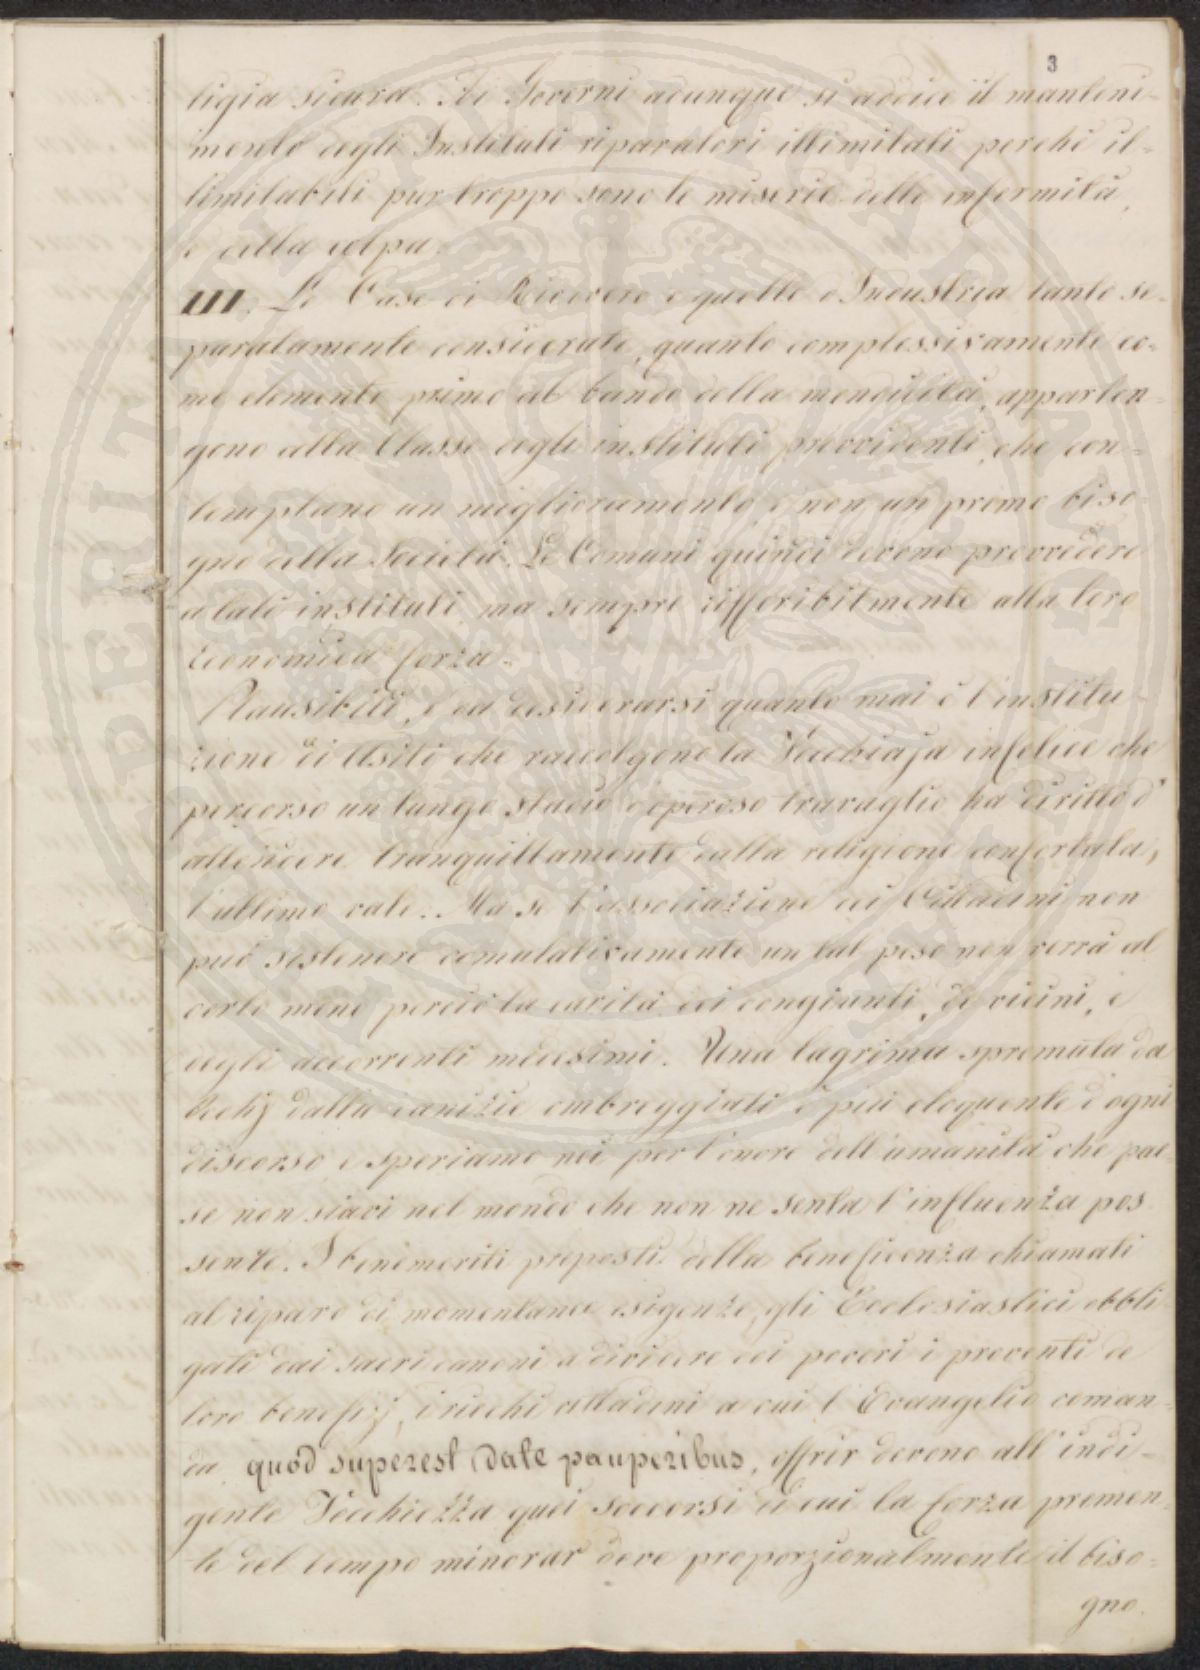 3
ligia sicura. Ai Governi adunque si addice il manteni-
mento degli Instituti riparatori illimitati perchè il-
limitabili pur troppo sono le miserie delle infermità,
e della colpa.
III. Le Case di Ricovero e quelle d'Industria tanto se-
paratamente considerate, quanto complessivamente co-
me elemento primo al bando della mendicità, apparten-
gono alla Classe degli instituti provvidenti, che con-
templano un miglioramento, e non un primo biso-
gno della Società. Le Comuni quindi devono provvedere
a tali instituti, ma sempre riferibilmente alla loro
economica forza.
Plausibili, e da desiderarsi quanto mai è l'institu-
zione di Asili che raccolgono la Vecchiaja infelice che
percorso un lungo stadio d'operoso travaglio ha diritto d'
attendere tranquillamente dalla religione confortata,
l'ultimo vale. Ma se l'associazione dei Cittadini non
può sostenere comulativamente un tal peso non verrà al
certo meno perciò la carità dei congiunti, de vicini, e
degli accorrenti medesimi. Una lagrima spremuta da
occhj dalla canizie ombreggiati è più eloquente d'ogni
discorso e speriamo noi per l'onore dell'umanità che pae-
se non siavi nel mondo che non ne senta l'influenza pos-
sente. I benemeriti preposti della beneficenza chiamati
al riparo di momentanee esigenze, gli Ecclesiastici obbli-
gati dai sacri canoni a dividere coi poveri i proventi de
loro beneficj, i ricchi cittadini a cui l'Evangelio coman-
da, quod superest date pauperibus, offrir devono all'indi-
gente Vecchiezza quei soccorsi di cui la forza premen-
te del tempo minorar deve proporzionalmente il biso-
gno.